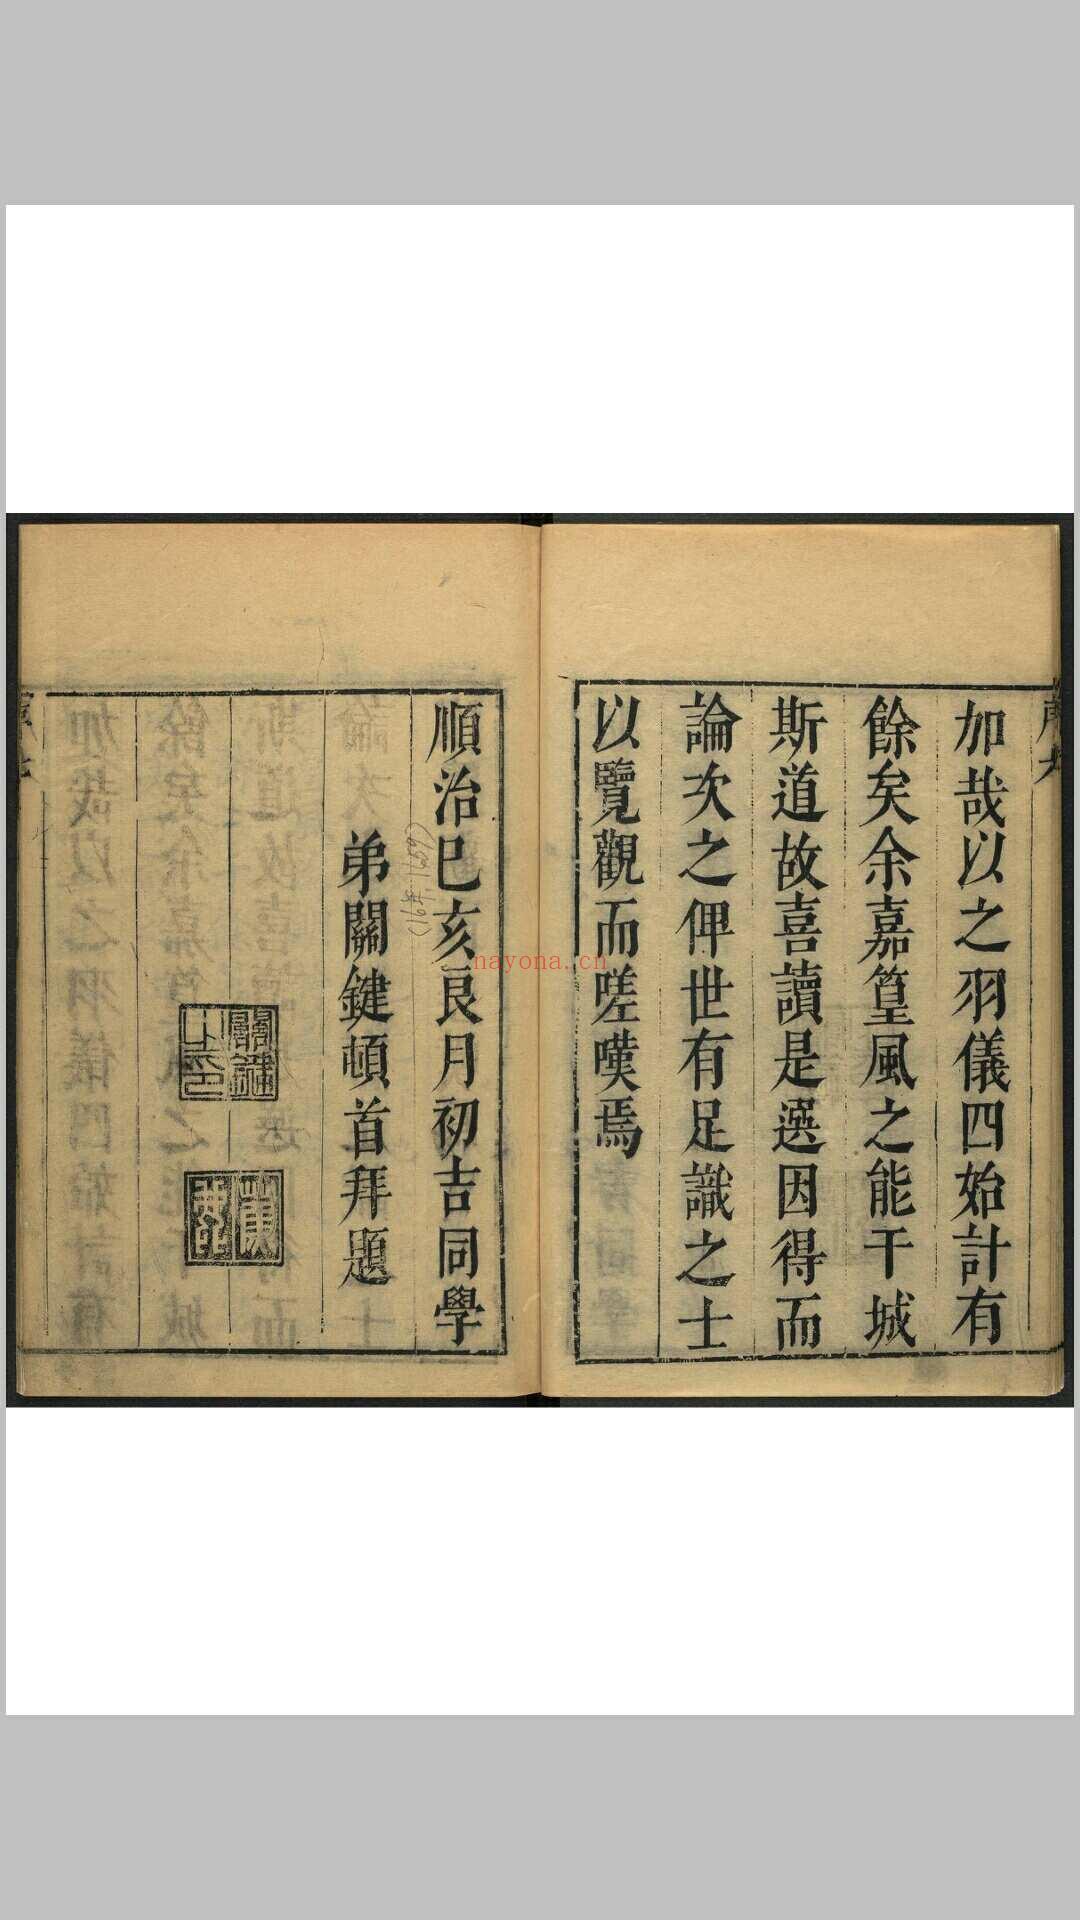 加哉以之羽儀四始計有
餘矣余嘉篁風之能干城
斯道故喜讀是選因得而
論次之俾世有足識之士
以覽觀而嗟嘆焉
順治己亥良月初吉同學
(16年 1659)
弟關鍵頓首拜題
關鍵之印
nayona.cn